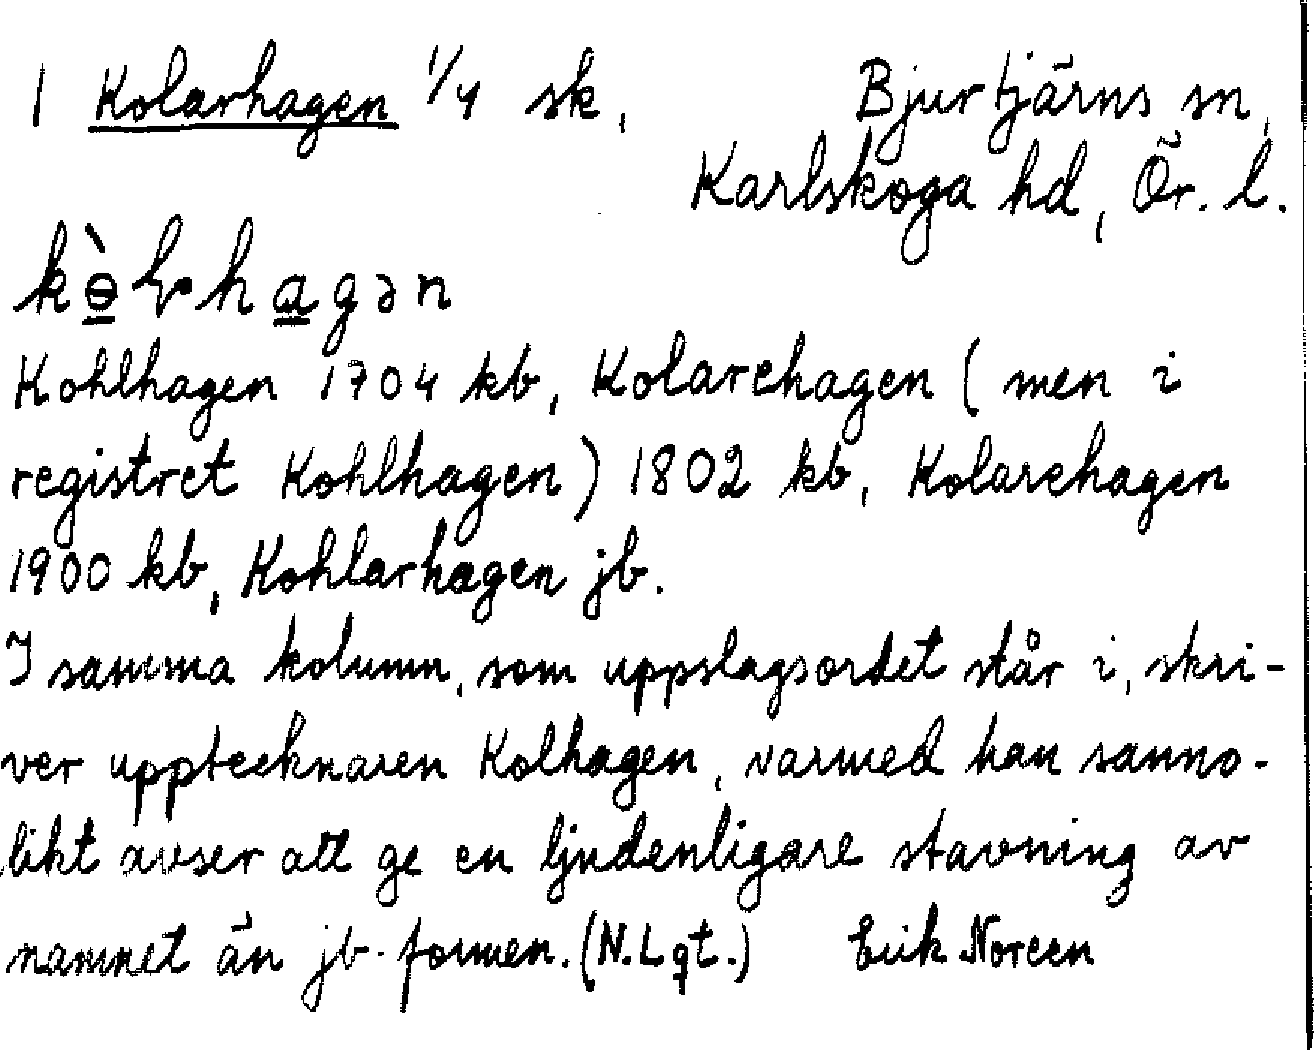 1 Kolarhagen 1/4 sk. Bjurtjärns sn,
Karlskoga hd, Ör. l.
kɵ̀ɽhagən
Kohlhagen 1704 kb, Kolarehagen (men i
registret Kohlhagen) 1802 kb, Kolarehagen
1900 kb, Kohlarhagen jb.
I samma kolumn, som uppslagsordet står i, skri-
ver upptecknaren Kolhagen, varmed han sanno-
likt avser att ge en ljudenligare stavning av
namnet än jb. formen. (N. Lqt.) Erik Noreen